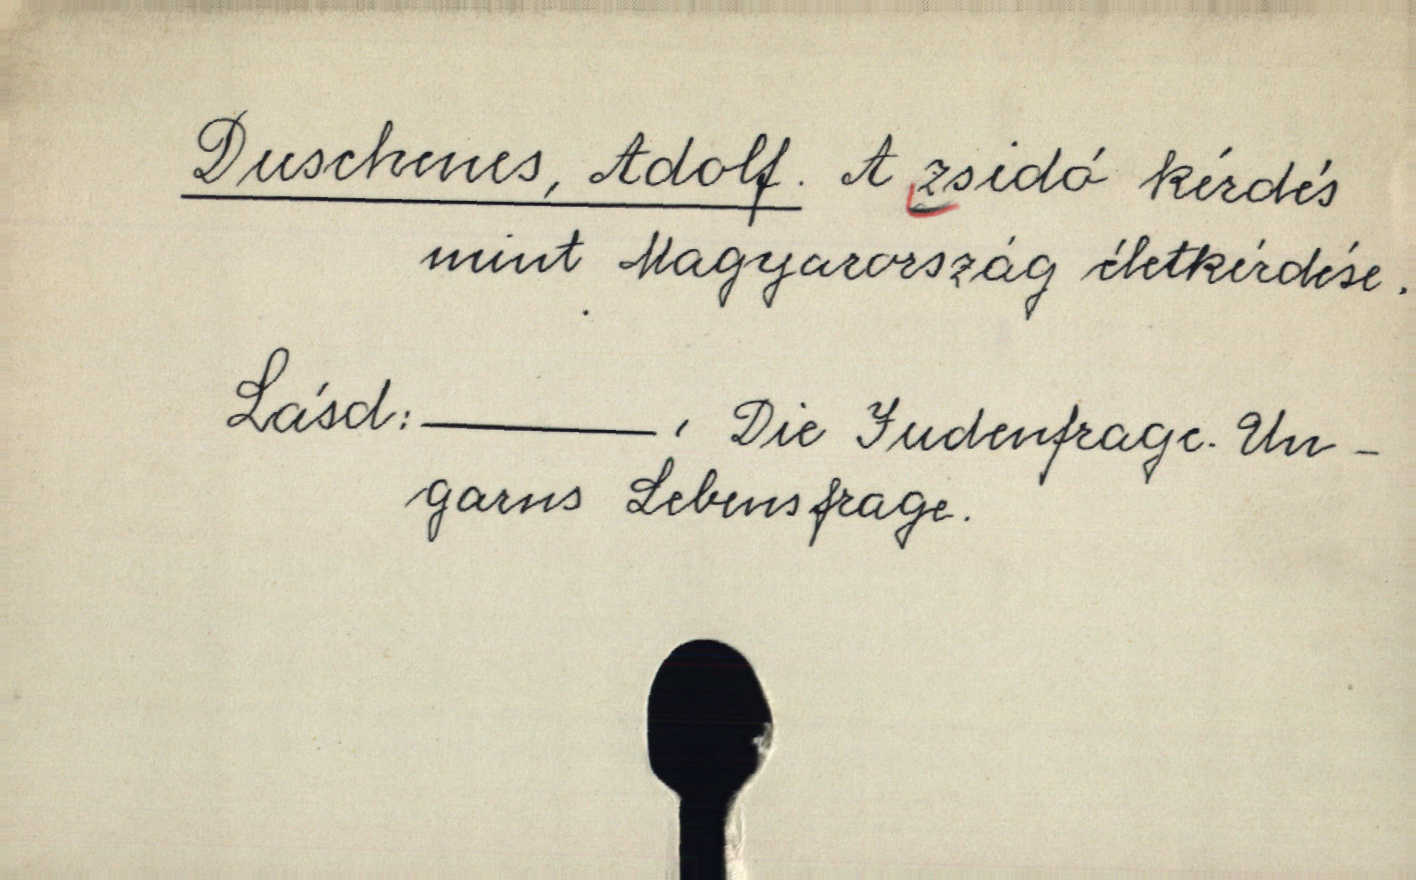 Duschenes, Adolf. A zsidó kérdés
mint Magyarország életkérdése.
Lásd: ——— , Die Judenfrage. Un-
garns Lebensfrage.